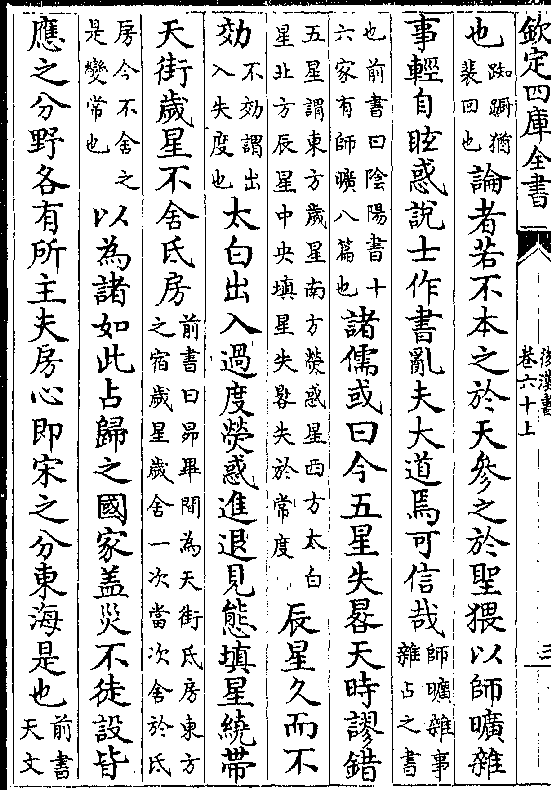 欽定四庫全書
後漢書
卷六十上
三
也踟蹰猶裴回也論者若不本之於天參之於聖猥以師曠雜
事輕自眩惑說士作書亂夫大道焉可信哉師曠雜事雜占之書
也前書曰陰陽書十六家有師曠八篇也諸儒或曰今五星失晷天時謬錯
五星謂東方歲星南方熒惑星西方太白星北方辰星中央填星失晷失於常度辰星久而不
効不効謂出入失度也太白出入過度熒惑進退見態填星繞帶
天街歲星不舍氐房前書曰昴畢間為天街氐房東方之宿歲星歲舍一次當次舍於氐
房今不舍之是變常也以為諸如此占歸之國家盖災不徒設皆
應之分野各有所主夫房心即宋之分東海是也前書天文